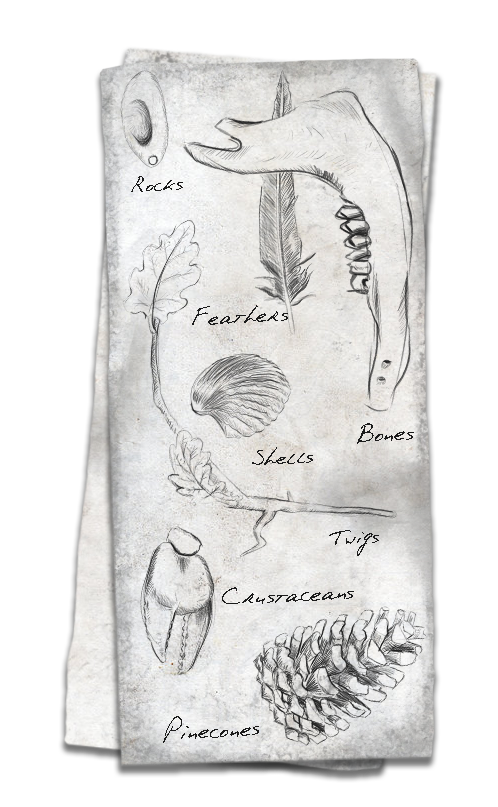 Rocks
Feathers
Bones
Shells
Twigs
Crustaceans
Pinecones